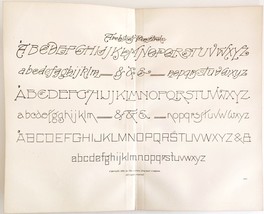 ABCDEFGHIJKLMNOPQRSTUVWXYZ
abcdefghijklm & & nopqrstuvwxyz
ABCDEFGHIJKLMNOPQRSTUVWXYZ
abcdefghijklm & & nopqrstuvwxyz
ABCDEFGHIJKLMNOPQRSTUVWXYZ&
abcdefghijklmnopqrstuvwxyz